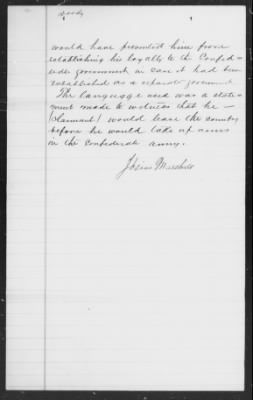 would have prevented him from
establishing his loyalty to the Confed-
erate government in case it had been
established as a separate government.
The language used was a state-
ment made to witness that he —
(claimant) would leave the country
before he would take up arms
in the confederate army.